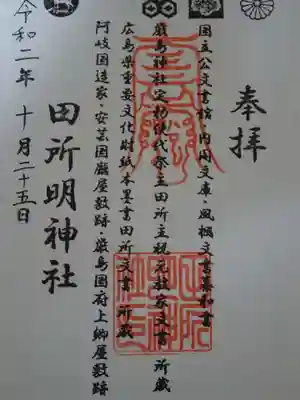 奉拝
国立公文書館・内閣文庫・風土文書蔵和書
厳島神社定初後代祭主田所主税元能家文書所蔵
広島県重要文化財紙本墨書田所文書所蔵
阿岐国造家・安芸国廳屋敷跡・厳島国府上卿屋敷跡
田所明神社
令和二年 十月二十五日